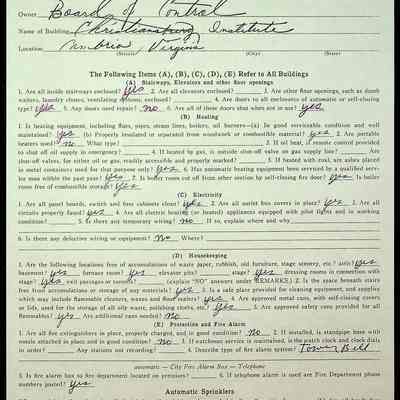 Owner Board of Control
Name of Building Christiansburg Institute
Location Cambria Virginia
(Street) (City) (State)
The Following Items (A), (B), (C), (D), (E) Refer to All Buildings
(A) Stairways, Elevators and other floor openings
1. Are all inside stairways enclosed? yes 2. Are all elevators enclosed? 3. Are other floor openings, such as dumb
waiters, laundry chutes, ventilating systems, enclosed? 4. Are doors to all enclosures of automatic or self-closing
type? yes 5. Are doors need repair? no 6. Are all of these doors shut when not in use? yes
(B) Heating
1. Is heating equipment, including flues, pipes, steam lines, boilers, oil burners—(a) In good serviceable condition and well
maintained? yes (b) Properly insulated or separated from woodwork or combustible material? yes 2. Are portable
heaters used? no What type? 3. If oil heat, is remote control provided
to shut off oil supply in emergency? 4. If heated by gas, is outside shut-off valve on gas supply line? Are
shut-off valves, for either oil or gas, readily accessible and properly marked? 5. If heated with coal, are ashes placed
in metal containers used for that purpose only? yes 6. Has automatic heating equipment been serviced by a qualified serv-
ice man within the past year? yes 7. Is boiler room cut off from other section by self-closing fire door? yes Is boiler
room free of combustible storage? yes
(C) Electricity
1. Are all panel boards, switch and fuse cabinets clear? yes 2. Are all outlet box covers in place? yes 3. Are all
circuits properly fused? yes 4. Are all electric heating (or heated) appliances equipped with pilot lights and in working
condition? 5. Is there any temporary wiring? no If so, explain where and why
6. Is there any defective wiring or equipment? no Where?
(D) Housekeeping
1. Are the following locations free of accumulations of waste paper, rubbish, old furniture, stage scenery, etc.? attic? yes
basement? yes furnace room? yes elevator pits? stage? yes dressing rooms in connection with
stage? yes exit passages or tunnels? (explain "NO" answers under REMARKS.) 2. Is the space beneath stairs
free from accumulations or storage of any materials? yes 3. Is a safe place provided for cleaning equipment, and supplies
which may include flammable cleaners, waxes and floor mallets? yes 4. Are approved metal cans, with self-closing covers
or lids, used for the storage of all oily waste, polishing cloths, etc.? yes 5. Are approved safety cans provided for all
flammables? yes 6. Are additional cans needed? no
(E) Protection and Fire Alarm
1. Are all fire extinguishers in place, properly charged, and in good condition? no 2. If installed, is standpipe hose with
nozzle attached in place and in good condition? no 3. If watchman service is maintained, is the watch clock and clock dials
in order? Any stations not recording? 4. Describe type of fire alarm system? Tower Bell
automatic — City Fire Alarm Box — Telephone
5. Is fire alarm box to fire department located on premises? 6. If telephone alarm is used are Fire Department phone
numbers posted? yes
Automatic Sprinklers